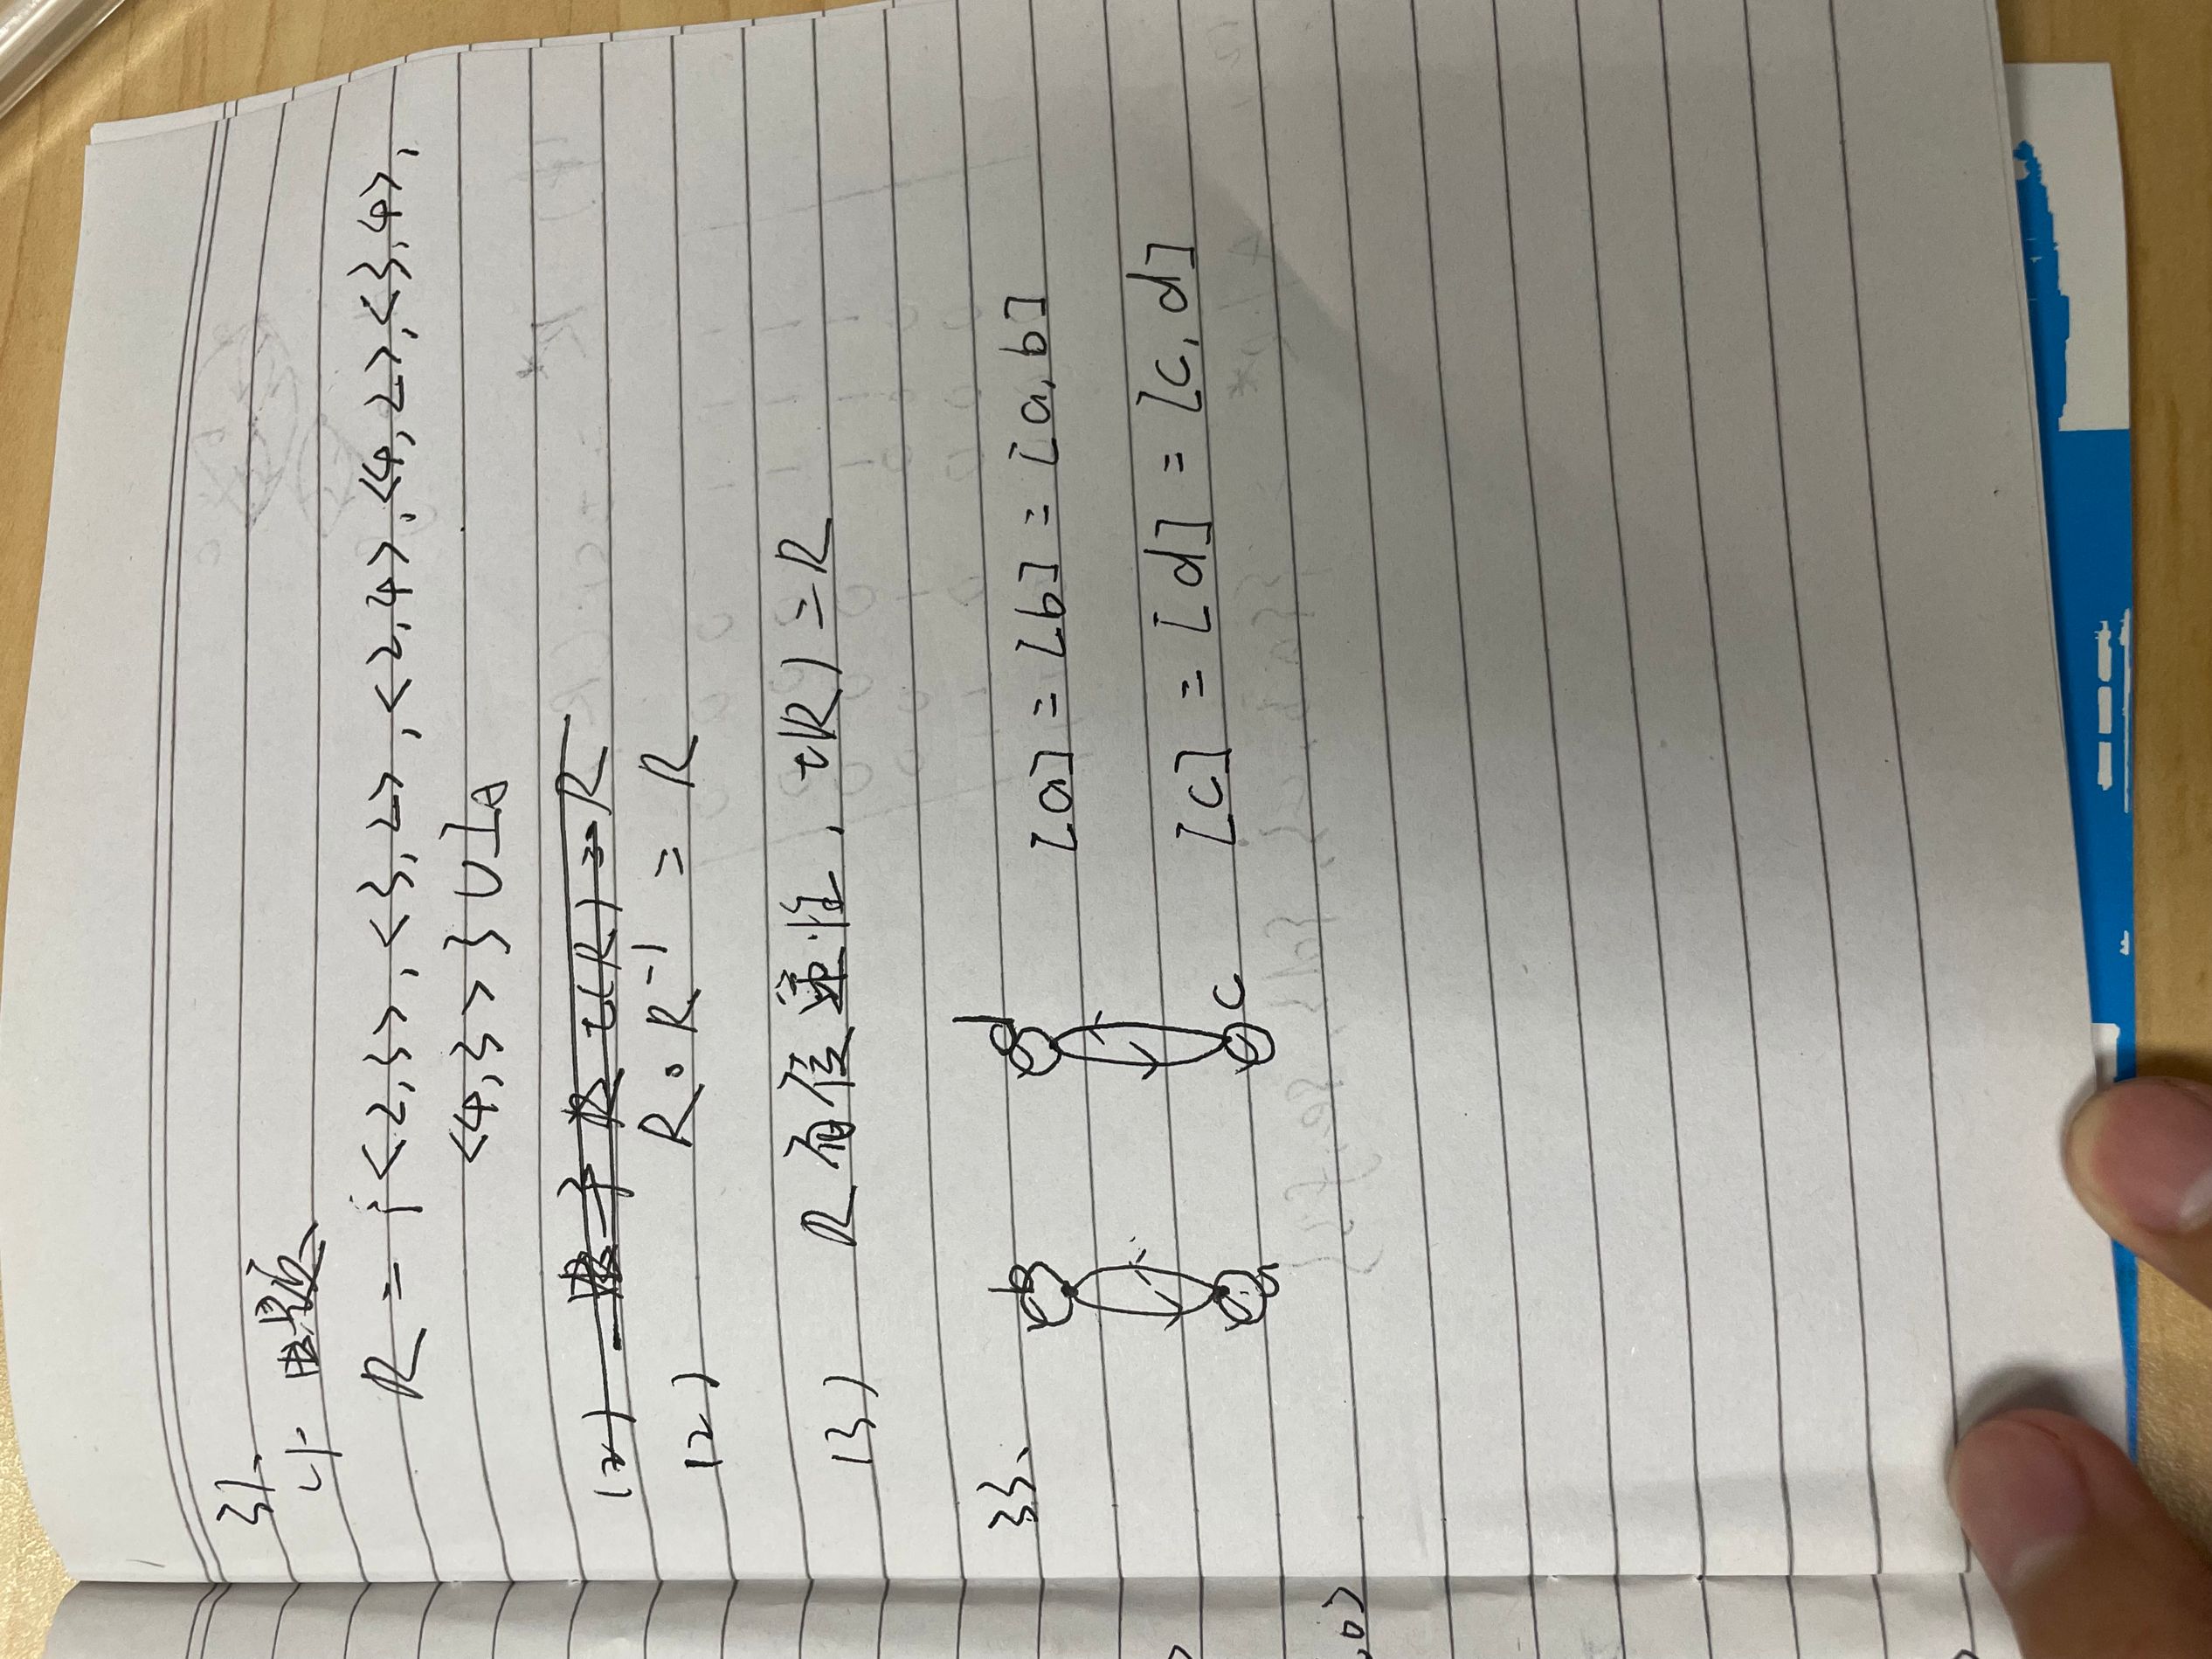 31、
(1) 由题
R = {<2,3>, <3,2>, <2,4>, <4,2>, <3,4>,
<4,3>} ∪ I_A
(2) t(R) = R
(2) R∘R⁻¹ = R
(3) R有传递性, t(R) = R
33、
b d [a] = [b] = [a,b]
a c [c] = [d] = [c,d]